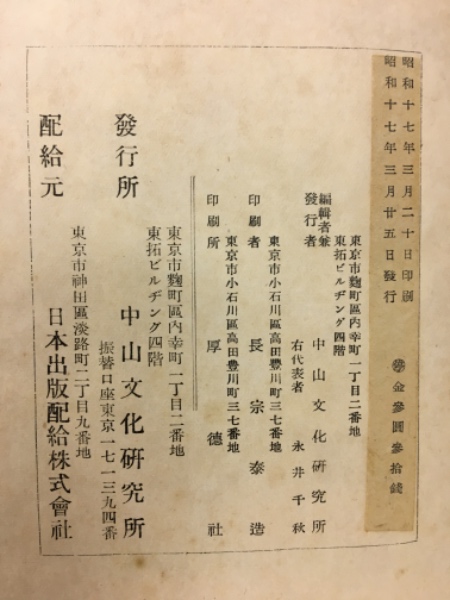 昭和十七年三月二十日印刷
昭和十七年三月廿五日發行
金參圓參拾錢
東京市麴町區內幸町一丁目二番地
東拓ビルヂング四階
編輯者兼
發行者
中山文化硏究所
右代表者 永井千秋
東京市小石川區高田豊川町三七番地
印刷者 長宗泰造
東京市小石川區高田豊川町三七番地
印刷所 厚德社
東京市麴町區內幸町一丁目二番地
東拓ビルヂング四階
發行所 中山文化硏究所
振替口座東京一七一三九四番
東京市神田區淡路町二丁目九番地
配給元 日本出版配給株式會社